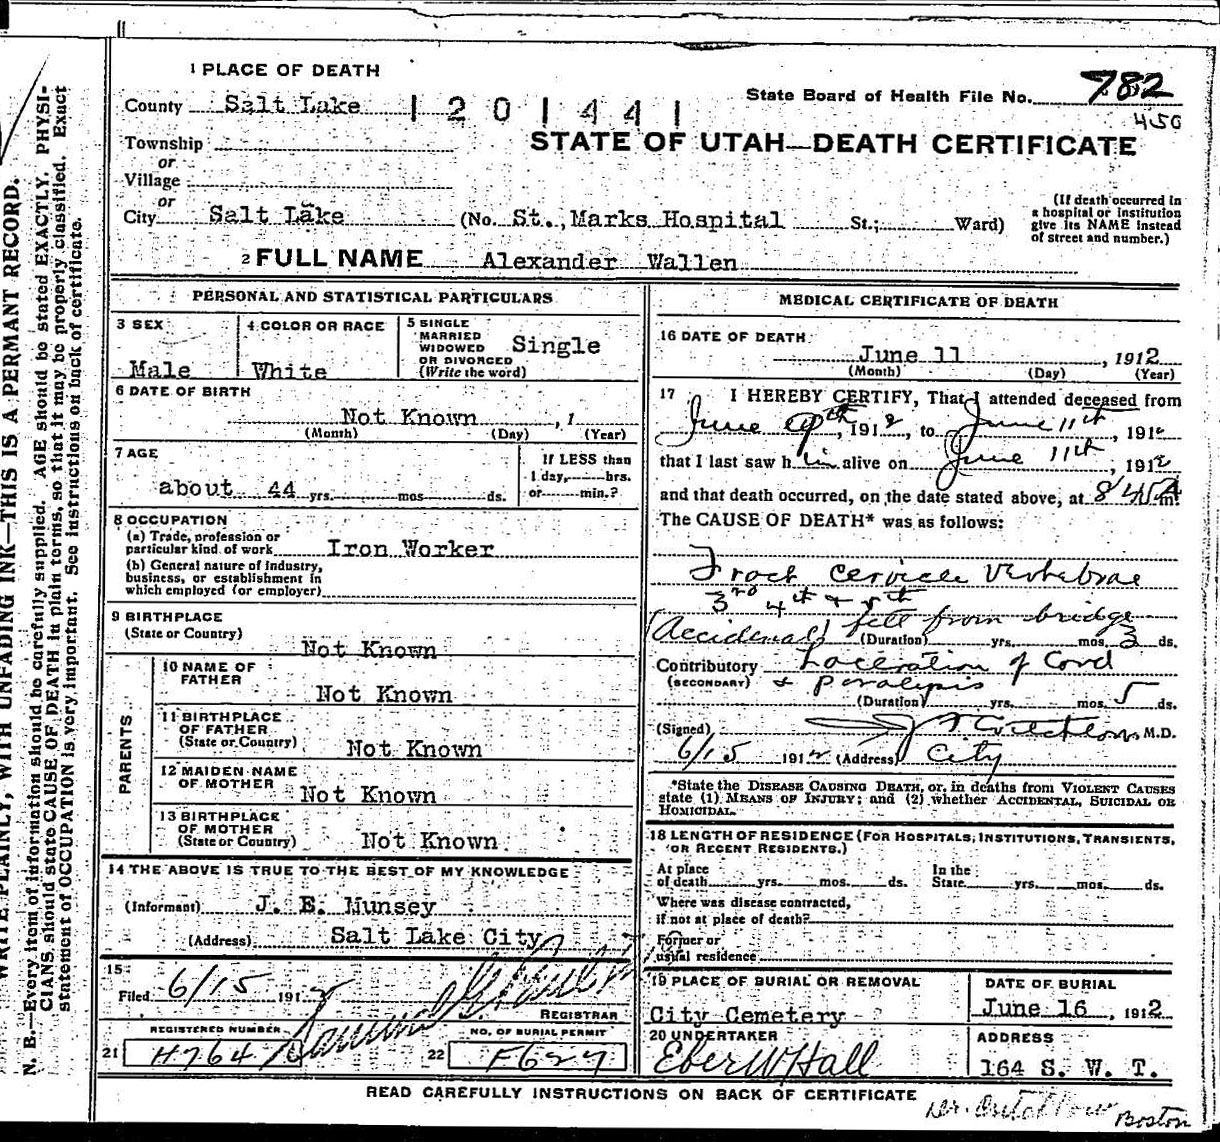 1 PLACE OF DEATH
County Salt Lake 1201441
State Board of Health File No. 782
450
STATE OF UTAH—DEATH CERTIFICATE
Township
or
Village
or
City Salt Lake (No. St., Marks Hospital St.; Ward)
(If death occurred in a hospital or institution give its NAME instead of street and number.)
2 FULL NAME Alexander Wallen
PERSONAL AND STATISTICAL PARTICULARS
3 SEX Male
4 COLOR OR RACE White
5 SINGLE MARRIED WIDOWED OR DIVORCED (Write the word) Single
6 DATE OF BIRTH
Not Known , 1
(Month) (Day) (Year)
7 AGE
about 44 yrs. mos ds.
If LESS than 1 day, hrs. or min.?
8 OCCUPATION
(a) Trade, profession or particular kind of work Iron Worker
(b) General nature of industry, business, or establishment in which employed (or employer)
9 BIRTHPLACE
(State or Country) Not Known
PARENTS
10 NAME OF FATHER Not Known
11 BIRTHPLACE OF FATHER (State or Country) Not Known
12 MAIDEN NAME OF MOTHER Not Known
13 BIRTHPLACE OF MOTHER (State or Country) Not Known
14 THE ABOVE IS TRUE TO THE BEST OF MY KNOWLEDGE
(Informant) J. E. Munsey
(Address) Salt Lake City
15
Filed 6/15 1912
REGISTRAR
REGISTERED NUMBER
21 H764
NO. OF BURIAL PERMIT
22 F627
MEDICAL CERTIFICATE OF DEATH
16 DATE OF DEATH
June 11 , 1912
(Month) (Day) (Year)
17 I HEREBY CERTIFY, That I attended deceased from
June 9th, 1912, to June 11th, 1912
that I last saw him alive on June 11th, 1912
and that death occurred, on the date stated above, at 845 A m.
The CAUSE OF DEATH* was as follows:
Fract Cervicle Vertebrae
3rd 4th & 5th
(Accidenal) fell from bridge
(Duration) yrs. mos. 3 ds.
Contributory Laceration of Cord
(SECONDARY) & Paralysis
(Duration) yrs. mos. 5 ds.
(Signed) M.D.
6/15 1912 (Address) City
*State the DISEASE CAUSING DEATH, or, in deaths from VIOLENT CAUSES state (1) MEANS OF INJURY; and (2) whether ACCIDENTAL, SUICIDAL OR HOMICIDAL.
18 LENGTH OF RESIDENCE (FOR HOSPITALS, INSTITUTIONS, TRANSIENTS, OR RECENT RESIDENTS.)
At place of death yrs. mos. ds. In the State yrs. mos. ds.
Where was disease contracted, if not at place of death?
Former or usual residence
19 PLACE OF BURIAL OR REMOVAL
City Cemetery
DATE OF BURIAL
June 16 , 1912
20 UNDERTAKER
Eber W Hall
ADDRESS
164 S. W. T.
READ CAREFULLY INSTRUCTIONS ON BACK OF CERTIFICATE
Dr. Boston
WRITE PLAINLY, WITH UNFADING INK—THIS IS A PERMANT RECORD.
N. B.—Every item of information should be carefully supplied. AGE should be stated EXACTLY. PHYSI-
CIANS should state CAUSE OF DEATH in plain terms, so that it may be properly classified. Exact
statement of OCCUPATION is very important. See instructions on back of certificate.